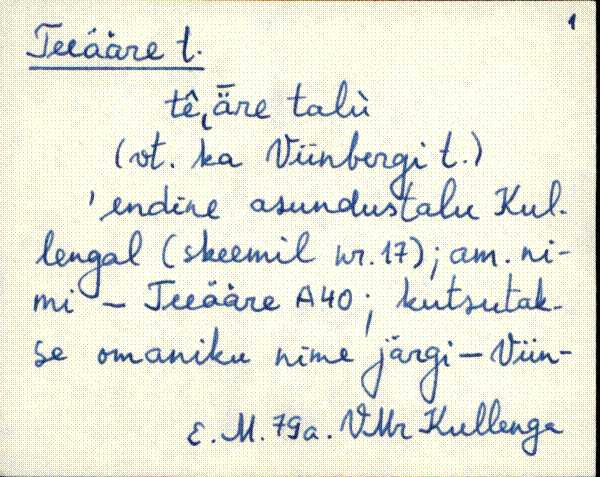 1
Teeääre t.
tê‿ǟre talù
(vt. ka Viinbergi t.)
'endine asundustalu Kul-
lengal (skeemil nr. 17); am. ni-
mi – Teeääre A40; kutsutak-
se omaniku nime järgi – Viin-
E. M. 79a. VMr Kullenga